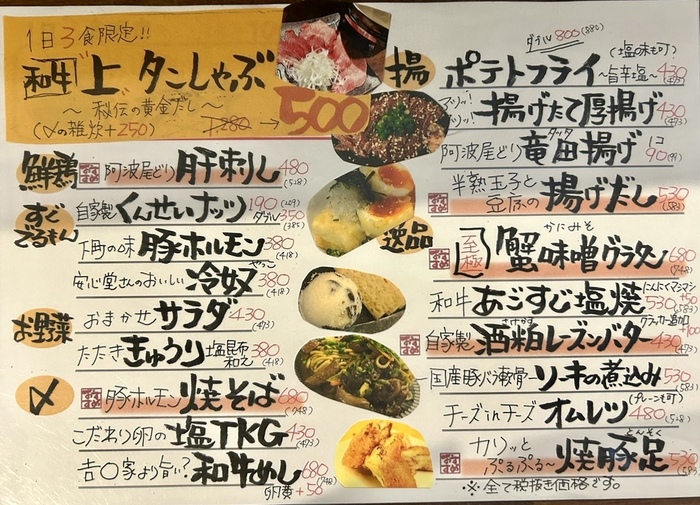 1日3食限定!!
和牛 上 タンしゃぶ
～ 秘伝の黄金だし ～
(〆の雑炊+250)
1280 → 500
鮮鶏
おすすめ 阿波尾どり 肝刺し 480 (528)
すぐでるもん
自家製 くんせいナッツ 190 (209) ダブル 350 (385)
下町の味 豚ホルモン 380 (418)
安心堂さんのおいしい 冷奴 やっこ 380 (418)
お野菜
おまかせ サラダ 430 (473)
たたき きゅうり 塩昆布和え 380 (418)
〆
おすすめ 豚ホルモン 焼そば 680 (748)
こだわり卵の 塩TKG 430 (473)
吉〇家より旨い? 和牛めし 680 (748)
卵黄+50
揚
ダブル 800 (880)
(塩味も可)
ポテトフライ ～旨辛塩～ 430 (473)
アツッ!アツッ! 揚げたて厚揚げ 430 (473)
阿波尾どり 竜田揚げ タツタ 1コ 90 (99)
おすすめ 半熟玉子と豆腐の 揚げだし 530 (583)
逸品
おすすめ 至極 蟹味噌グラタン かにみそ 680 (748)
和牛 あごすじ塩焼 にんにくマシマシ 530 (583)
おすすめ 自家製 酒粕レーズンバター さけかす クラッカー追加 430 (473)
国産豚バラ軟骨 ソーキの煮込み 530 (583)
チーズinチーズ オムレツ (プレーンも可) 480 (528)
カリッとぷるぷる～ 焼豚足 とんそく おすすめ 530 (583)
※全て税抜き価格です。